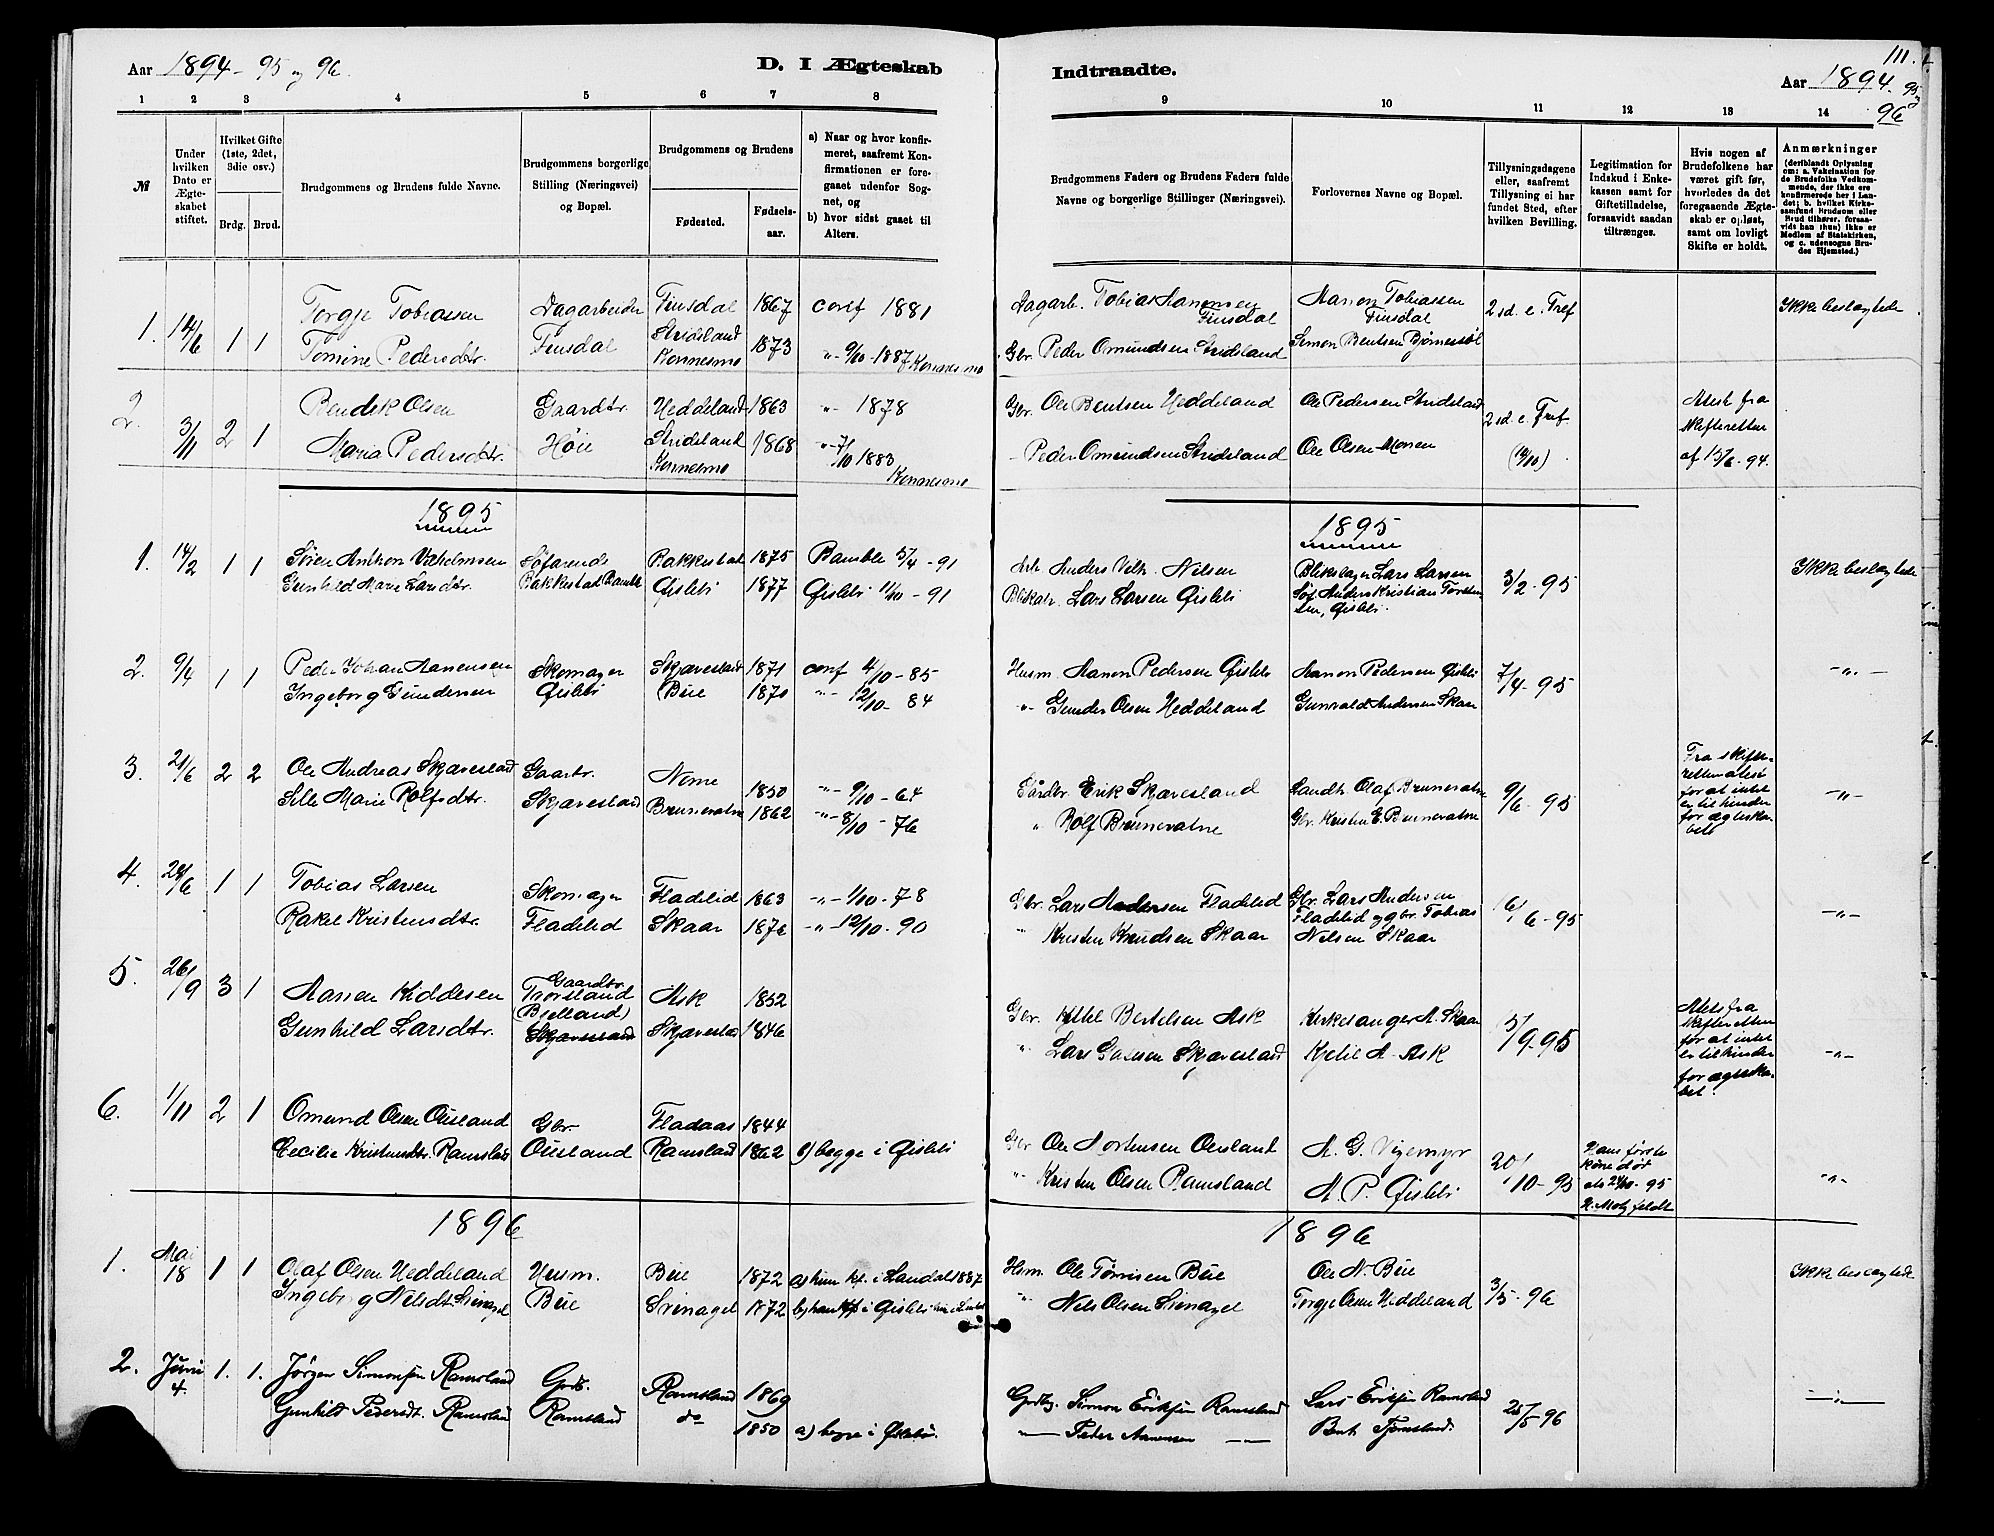 Aar 1894-95 og 96.
D. I Ægteskab
Indtraadte.
111.
Aar 1894-95 og
96
1 2 3 4 5 6 7 8
9 10 11 12 13 14
№
Under hvilken Dato er Ægteskabet stiftet.
Hvilket Gifte (1ste, 2det, 3die osv.)
Brdg. Brud.
Brudgommens og Brudens fulde Navne.
Brudgommens borgerlige Stilling (Næringsvei) og Bopæl.
Brudgommens og Brudens
Fødested. Fødselsaar.
a) Naar og hvor konfirmeret, saafremt Konfirmationen er foregaaet udenfor Sognet, og
b) hvor sidst gaaet til Alters.
Brudgommens Faders og Brudens Faders fulde Navne og borgerlige Stillinger (Næringsvei).
Forlovernes Navne og Bopæl.
Tillysningsdagene eller, saafremt Tillysning ei har fundet Sted, efter hvilken Bevilling.
Legitimation for Indskud i Enkekassen samt for Giftetilladelse, forsaavidt saadan tiltrænges.
Hvis nogen af Brudefolkene har været gift før, hvorledes da det foregaaende Ægteskab er opløst, samt om lovligt Skifte er holdt.
Anmærkninger
(deriblandt Oplysning om: a. Vakcination for de Brudefolks Vedkommende, der ikke ere konfirmerede her i Landet; b. hvilket Kirkesamfund Brudgom eller Brud tilhører, forsaavidt han (hun) ikke er Medlem af Statskirken, og c. udensogns Brudes Hjemsted.)
1. 14/6 1 1 Torgje Tobiassen Dagarbeider Finsdal 1867 conf 1881 Dagarb. Tobias Aanensen Finsdal Aanon Tobiassen Finsdal 2 sd. e. Tref Ikke beslægtede
Tomine Pedersdtr. Finsdal Stridsland Konnesmo 1873 " 9/10-1887 Konnesmo Gbr. Peder Omundsen Stridsland Simon Bentsen
2. 3/11 2 1 Bendik Olsen Gaardbr. Heddeland 1863 " 1878 Gbr. Ole Bentsen Heddeland Ole Pedersen Stridsland 2 sd. e. Tref Attest fra Skifteretten af 15/6-94.
Maria Pedersdtr. Høie Stridsland Konnesmo 1868 " 7/10 1883 Konnesmo Peder Omundsen Stridsland Ole Olsen Monen (14/10)
1895
1895
1. 14/2 1 1 Søren Anthon Vilhelmsen Søfarende Rakkestad 1875 Bamble 5/4-91 Arb. Anders Vilh. Nilsen Blikslager Lars Larsen 3/2-95 Ikke beslægtede
Gunhild Marie Larsdtr. Rakkestad Bamble Øislebø 1877 Øislebø 11/10-91 Lars Larsen Øislebø Søf. Anders Kristian Torstensen, Øislebø.
2. 9/4 1 1 Peder Johan Aanensen Skomager Skjævesland 1871 conf 4/10-85 Husm. Aanon Pedersen Øislebø Aanon Pedersen Øislebø 7/4-95 -"-
Ingeborg Gundersen Øislebø Bue 1870 " 12/10-84 " Gunder Olsen Heddeland Gunvald Andersen Skaar
3. 21/6 2 2 Ole Andreas Skjævesland Gaardbr. Nome 1850 -"- 9/10-64 Gårdbr Erik Skjævesland Landh. Olaf Brunevatne 9/6-95 Fra skifteretten attest for at intet er til hinder for ægteskabet -"-
Sille Marie Rolfsdtr. Skjævesland Brunevatne 1862 -"- 8/10-76 " Rolf Brunevatne Gbr. Kristen E. Brunevatne
4. 28/6 1 1 Tobias Larsen Skomager Fladelid 1863 -"- 1/10-78 Gbr. Lars Andersen Fladelid Gbr. Lars Andersen 16/6-95 -"-
Rakel Kristensdtr. Fladelid Skaar 1876 -"- 12/10-90 " Kristen Knudsen Skaar Fladelid og gbr. Tobias Nilsen Skaar
5. 26/9 3 1 Aanen Kiddesen Gaardbr. Trorsland Bjelland) Ask 1852 Gbr. Kittel Bertelsen Ask Kirkesanger A. Skaar 15/9-95 Attest fra Skifteretten for at intet er til hinder for ægteskabet. -"-
Gunhild Larsdtr. Skjævesland Skjævesland 1846 " Lars Skjævesland Kjetil A. Ask
6. 1/11 2 1 Omund Olsen Ousland Gbr. Fladaas 1844 Gbr Ole Mortensen Ousland A. G. Vigemyr 20/10-95 Hans første kone død -"-
Cecilie Kristensdtr. Ramsland Ousland Ramsland 1862 b) begge i Øislebø " Kristen Olsen Ramsland A. P. Øislebø
1896
1896
1. Mai 18 1 1 Olaf Olsen Heddeland Husm. Bue 1872 a) hun kf. i Landal 1887 Hsm. Ole Tørrisen Bue Ole N. Bue 3/5-96 Ikke beslægtede
Ingeborg Nilsdt. Svinagel Bue Svinagel 1872 b) han i Øislebø " Nils Olsen Svinagel Torgje Olsen Heddeland
2. Juni 4 1. 1. Jørgen Simonsen Ramsland Grdb. Ramsland 1869 Grdbg. Simon Eriksen Ramsland Lars Eriksen Ramsland 25/5-96
Gunhild Pedersdt. Ramsland Ramsland do 1850 a) begge i Øislebø. Peder Aanensen Bent Tjomsland